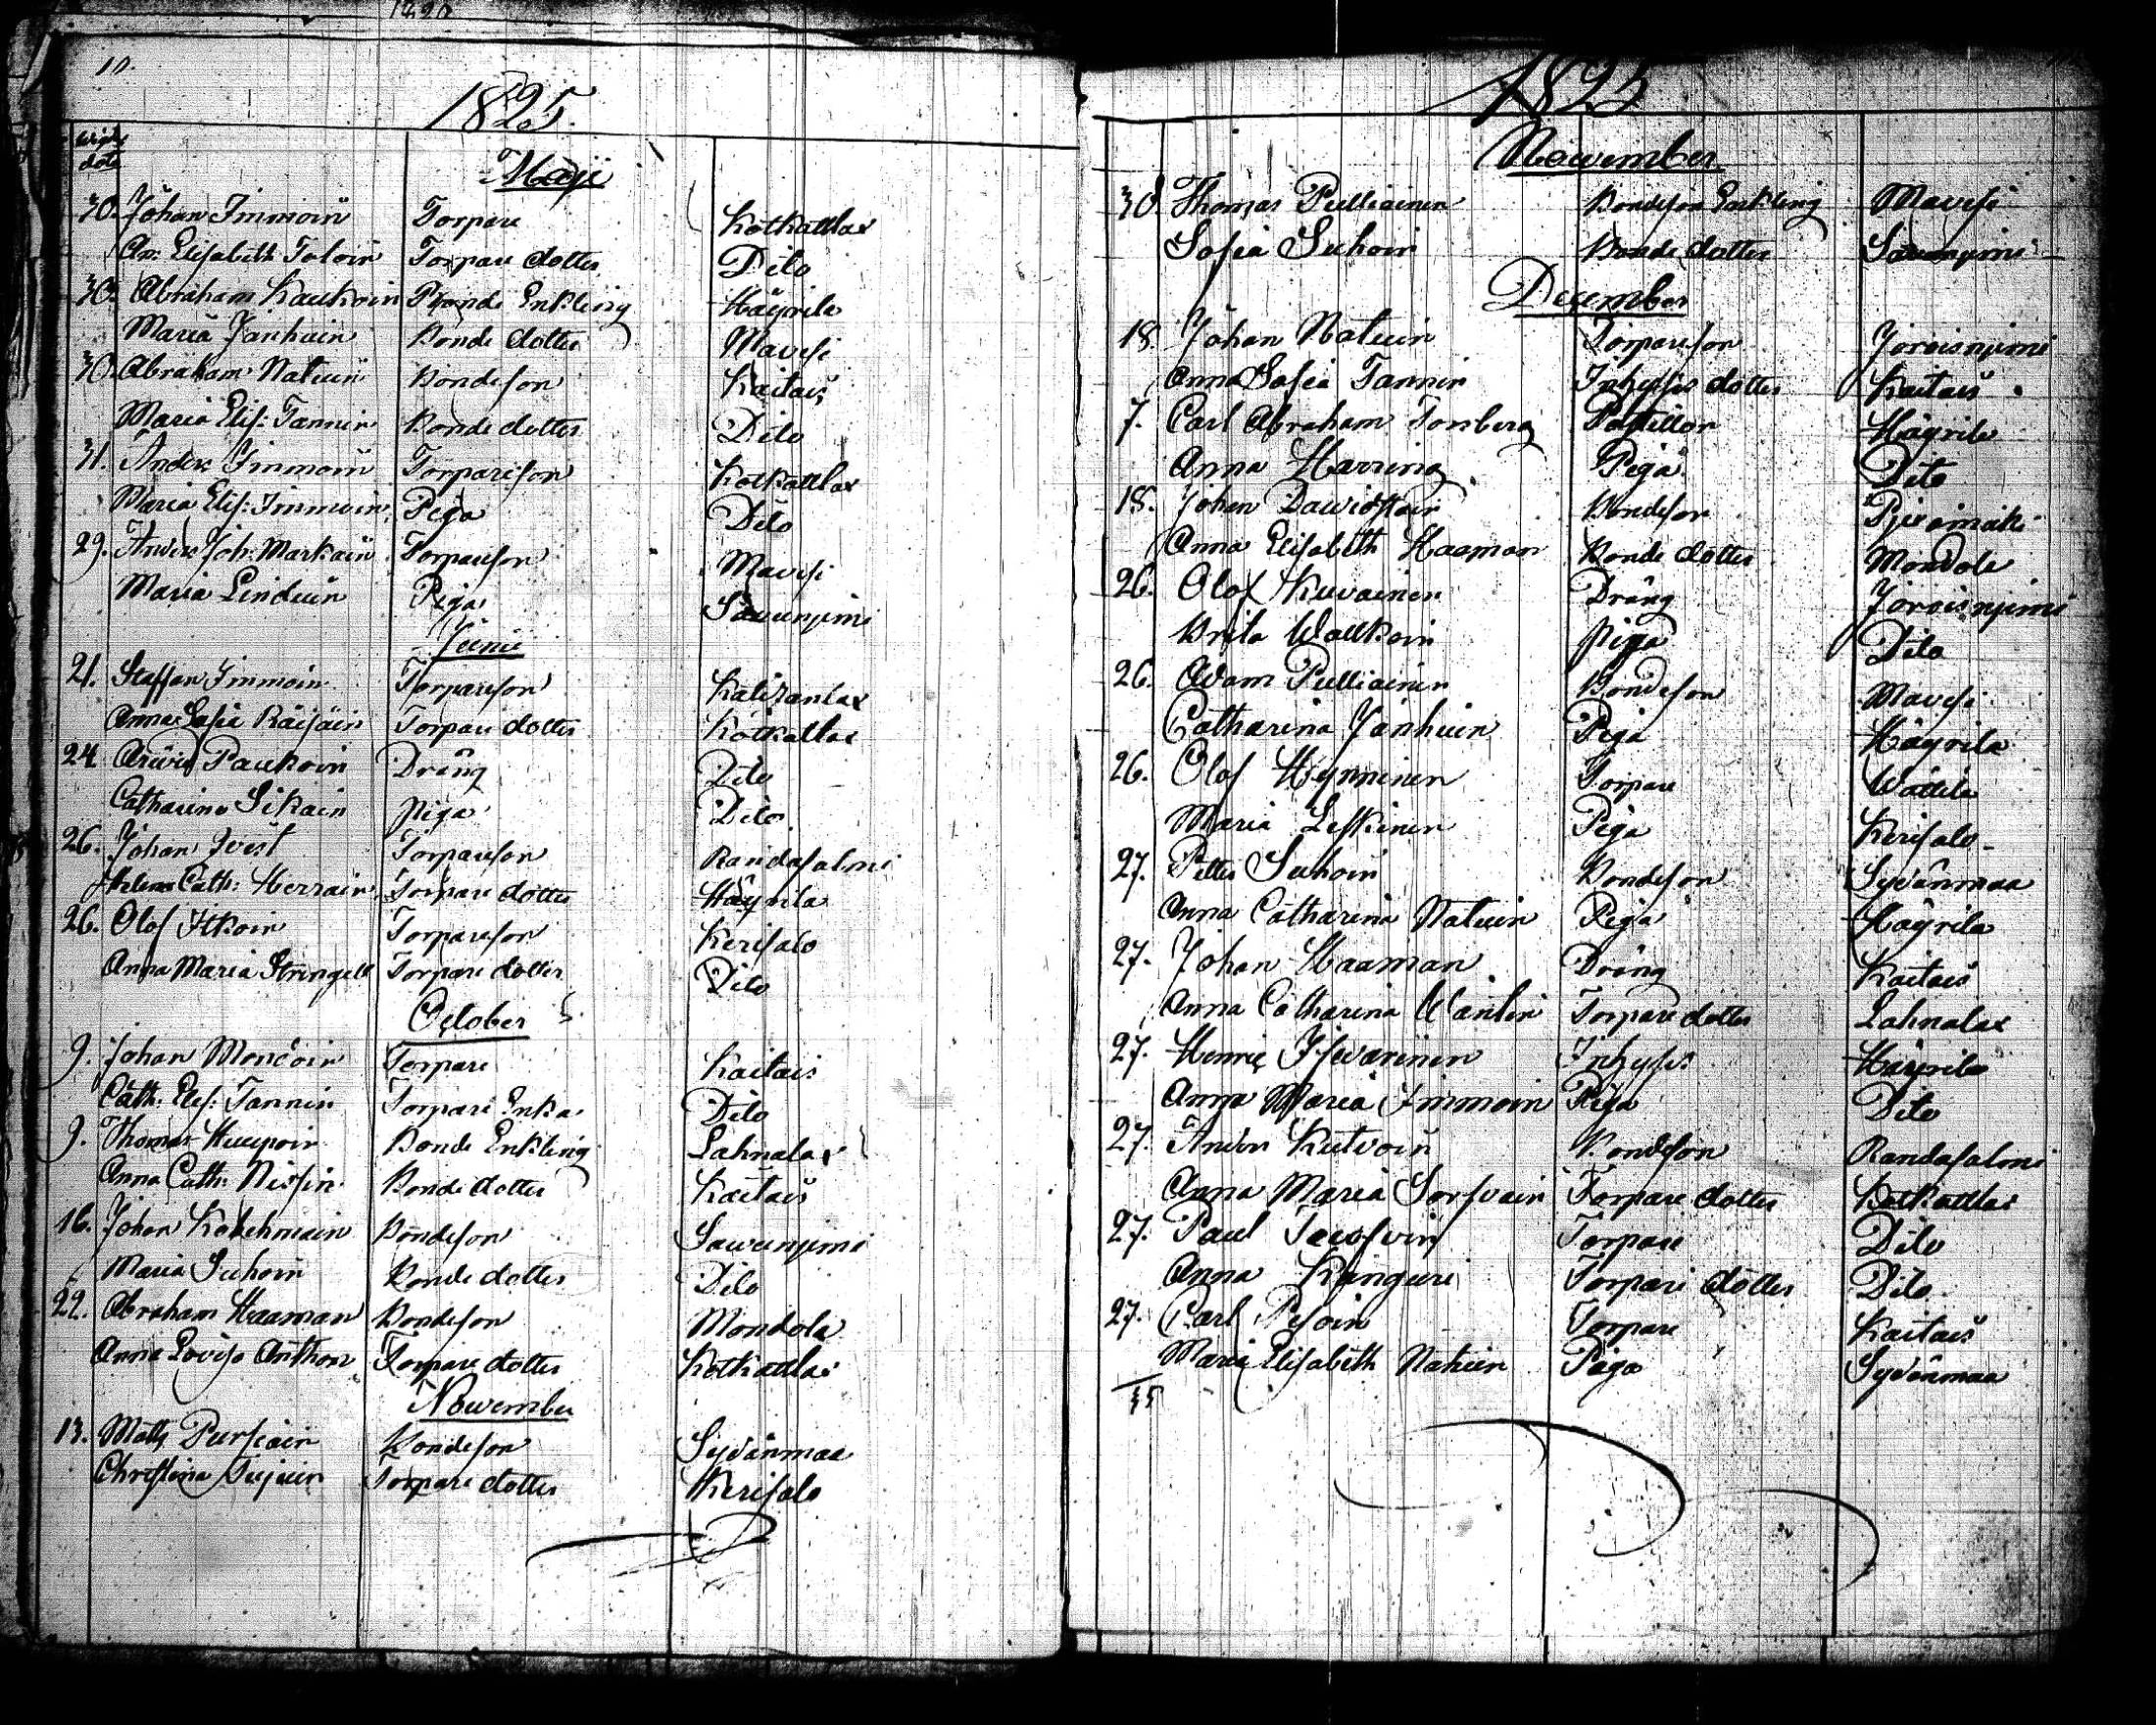 10.
1825.
Wigde
dato
Maji
30. Johan Immoin Torpare Kotkatlax
An: Elisabeth Toloin Torpare dotter Dito
30. Abraham Kaukoin Bonde Enkling Häyrilä
Maria Jänhuin Bonde dotter Mavesi
30. Abraham Natuin Bondeson Kaitais
Maria Elis: Tannin Bonde dotter Dito
31. Anders Immoin Torpareson Kotkatlax
Maria Elis: Immoin Piga Dito
29. Anders Joh: Markain Torpareson Mavesi
Maria Linduin Piga Savunjemi
Junii
21. Staffan Immoin Torpareson
Anna Sofia Räisäin Torpare dotter Kotkatlax
24. Paukoin Dräng Dito
Catharina Sikain piga Dito
26. Johan Torpareson Randasalmi
Helena Cath: Herrain Torpare dotter Häyrilä
26. Olof Itkoin Torpareson Kerisalo
Anna Maria Stringell Torpare dotter Dito
October
9. Johan Mondoin Torpare Kaitais
Cath: Elis: Tannin Torpare Enka Dito
9. Thomas Huupoin Bonde Enkling Lahnalax
Anna Cath: Nissin Bonde dotter Kaitais
16. Johan Kolehmain Bondeson Sawunjemi
Maria Suhoin Bonde dotter Dito
22. Abraham Haaman Bondeson Mondola
Anna Lovisa Anthon Torpare dotter Kotkatlax
Nowember
13. Matts Pursiain Bondeson Syvänmaa
Christina Torpare dotter Kerisalo
1825
Nowember
30. Thomas Pulliainen Bondeson Enkling Mavesi
Sofia Suhoin Bonde dotter Savunjemi
December
18. Johan Natuin Torpareson Joroisnjemi
Anna Sofia Tannin Inhyses dotter Kaitais
7. Carl Abraham Forsberg Postillon Häyrilä
Anna Harring Piga Dito
18. Johan Dawidskoin Bondeson
Anna Elisabeth Haaman Bonde dotter Mondola
26. Olof Kuvainen Dräng Joroisnjemi
Brita Wallkoin piga Dito
26. Adam Pulliainen Bondeson Mavesi
Catharina Jänhuin Piga Häyrilä
26. Olof Hynninen Torpare Wättilä
Maria Leskinen Piga Kerisalo
27. Petter Suhoin Bondeson Syvänmaa
Anna Catharina Natuin Piga Häyrilä
27. Johan Haaman Dräng Kaitais
Anna Catharina Wänlin Torpare dotter Lahnalax
27. Henric Ihvarinen Inhyses Häyrilä
Anna Maria Immoin Piga Dito
27. Anders Kutvoin Bondeson Randasalmi
Anna Maria Sorsvain Torpare dotter Kotkatlax
27. Paul Torpare Dito
Anna Kinguri Torpare dotter Dito
27. Carl Pesoin Torpare Kaitais
Maria Elisabeth Natuin Piga Syvänmaa
35